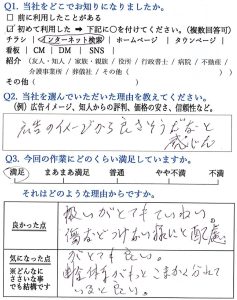 Q1. 当社をどこでお知りになりましたか。
□ 前に利用したことがある
☑ 初めて利用した ➡ 下記に○を付けてください。(複数回答可)
チラシ | インターネット検索 | ホームページ | タウンページ |
看板 | CM | DM | SNS |
紹介 (友人・知人 / 家族・親族 / 役所 / 行政書士 / 病院 / 不動産 / 介護事業所 / 葬儀社 / その他( ))
その他( )
Q2. 当社を選んでいただいた理由を教えてください。
(例) 広告イメージ、知人からの評判、価格の安さ、信頼性など。
広告のイメージから良さそうだなと
感じた
Q3. 今回の作業にどのくらい満足していますか。
満足 まあまあ満足 普通 やや不満 不満
それはどのような理由からですか。
良かった点
扱いがとてもていねい。
傷などつけない様にと配慮
がとても良い。
気になった点
※どんなに
ささいな事
でも結構です
体系がもっとこまかく分れて
いると良い。